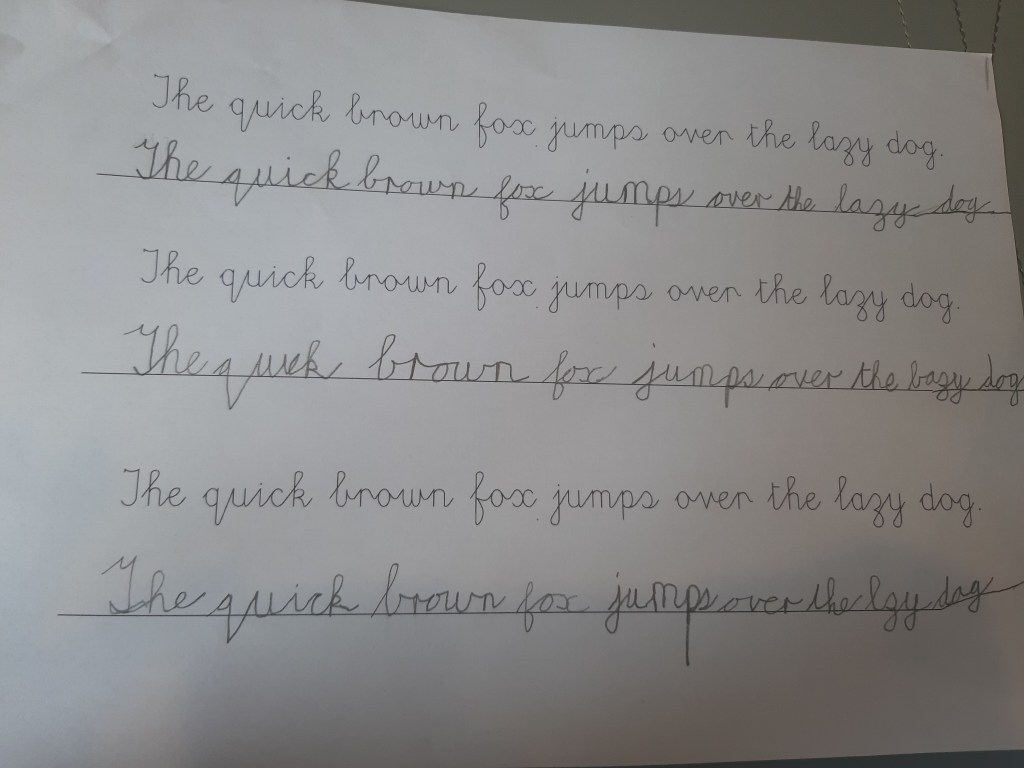 The quick brown fox jumps over the lazy dog.
The quick brown fox jumps over the lazy dog.
The quick brown fox jumps over the lazy dog.
The quick brown fox jumps over the bazy dog
The quick brown fox jumps over the lazy dog.
The quick brown fox jumps over the lgy dog